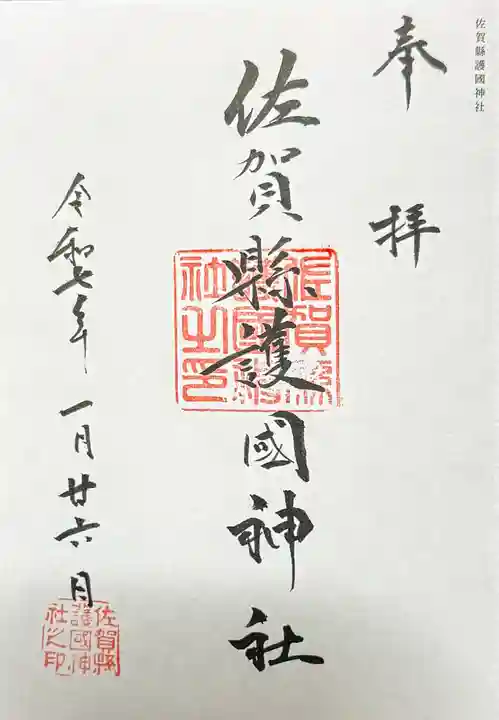 佐賀縣護國神社
奉拝
佐賀縣護國神社
佐賀縣護國神社之印
令和七年一月廿六日
佐賀縣護國神社之印